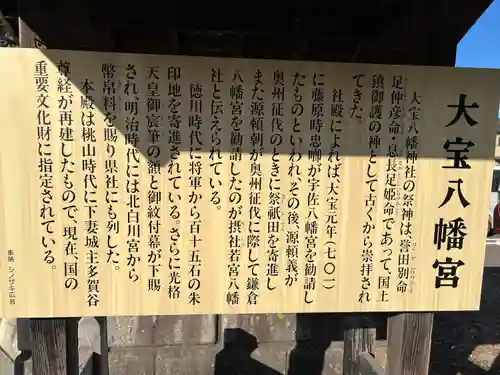 大宝八幡宮
大宝八幡神社の祭神は、誉田別命
足仲彦命、息長足姫命であって、国土
鎮御護の神として古くから崇拝され
てきた。
社殿によれば、大宝元年(七〇一)
に藤原時忠卿が宇佐八幡宮を勧請し
たものといわれ、その後、源頼義が
奥州征伐のときに祭祇田を寄進し
また源頼朝が奥州征伐に際して鎌倉
八幡宮を勧請したのが摂社若宮八幡
社と伝えられている。
徳川時代に将軍から百十五石の朱
印地を寄進されている。さらに光格
天皇御宸筆の額と御紋付幕が下賜
され、明治時代には北白川宮から
幣帛料を賜り県社にも列した。
本殿は桃山時代に下妻城主多賀谷
尊経が再建したもので、現在、国の
重要文化財に指定されている。
奉納 シノザキ広芸